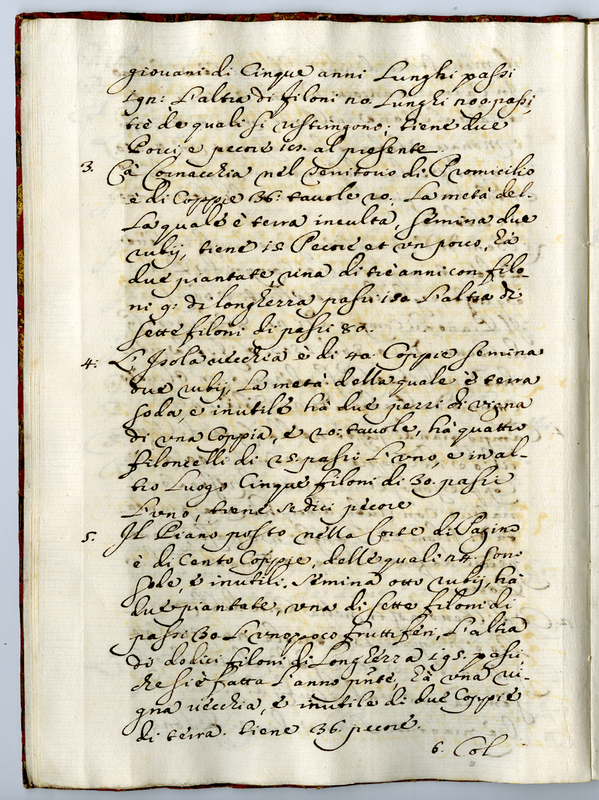 giovani di Cinque anni Lunghi passi
L'altra di filoni no. Lunghi passi
tre de quali si ristringono; tiene due
Porci, e pecore al presente
3. Cà Cornacchia nel di Promicilio
è di Coppie 36: tauole 20. La metà del-
La quale è terra inculta, semina due
rubij, tiene 15 Pecore et vn porco, hà
due piantate, vna di tre anni con filo-
ni 9: di longhezza passi 150 L'altra di
sette filoni di passi 80.
4: L'Isola uecchia è di 40: Coppie semina
due rubij, La metà della quale è terra
soda, e inutile hà due pezzi di vigna
di vna Coppia, e 20: tauole, hà quattro
filoncelli di 25. passi L'vno, e in al-
tro Luogo Cinque filoni di 30. passi
L'vno, tiene sedici pecore
5. Il Piano posto nella Corte di
è di Cento Coppie, delle quali 24. sono
sode, e inutili. Semina otto rubij, hà
due piantate, vna di sette filoni di
passi 30 L'vno poco fruttiferi, L'altra
di dodici filoni di Longhezza 195. passi,
che si è fatta L'anno pnte, hà vna vi-
gna uecchia, e inutile di due Coppie
di terra. tiene 36. pecore.
6. Col